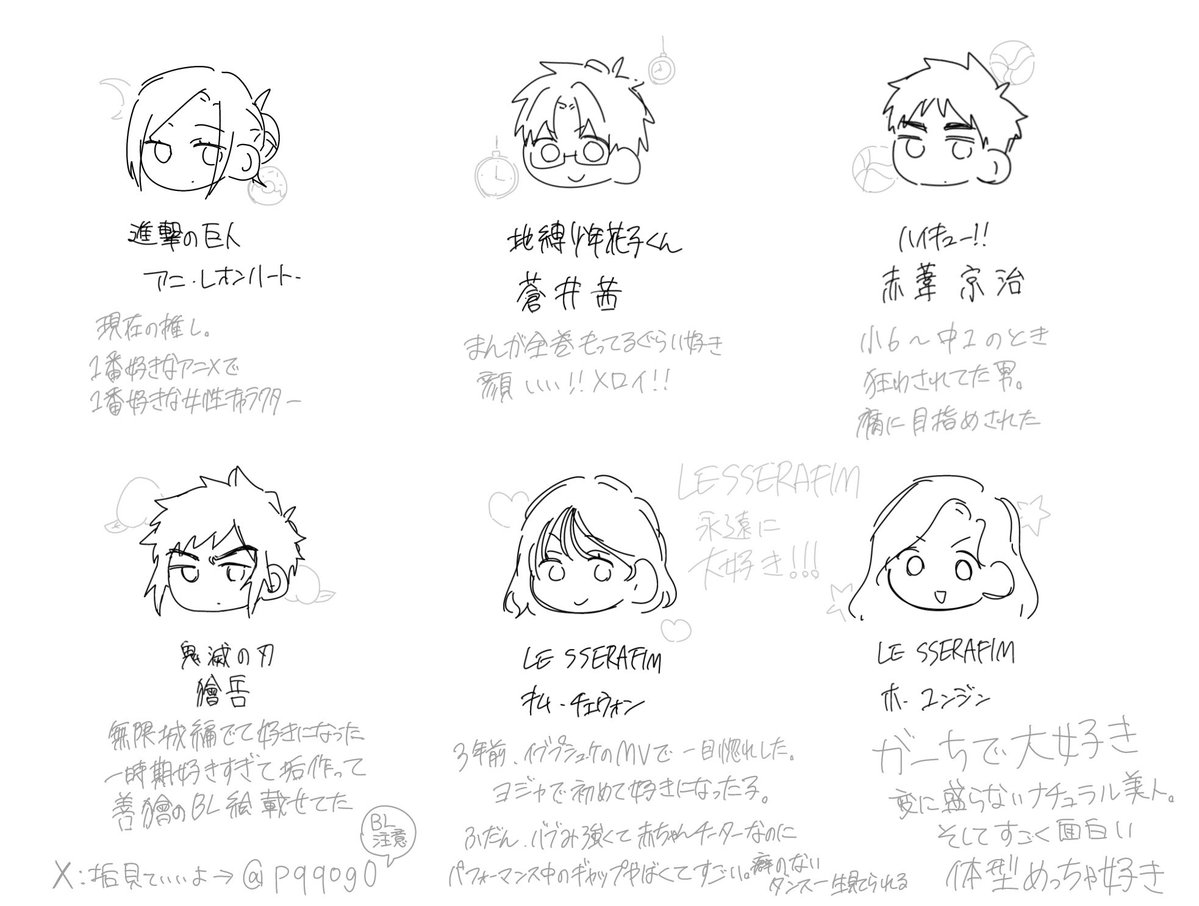 進撃の巨人
アニ・レオンハート
現在の推し。
1番好きなアニメで
1番好きな女性キャラクター
地縛少年花子くん
蒼井茜
まんが全巻もってるぐらい好き
顔いい!! メロイ!!
ハイキュー!!
赤葦京治
小6〜中1のとき
狂わされてた男。
腐に目指めされた
鬼滅の刃
獪岳
無限城編でて好きになった
一時期好きすぎて垢作って
善獪のBL絵載せてた
BL
注意
X:垢見ていいよ→@pqqogo
LE SSERAFIM
キム・チェウォン
3年前、イブプシュケのMVで一目惚れした。
ヨジャで初めて好きになった子。
ふだん、バブみ強くて赤ちゃんチーターなのに
パフォーマンス中のギャップやばくてすごい。癖のない
ダンス一生見てられる
LESSERAFIM
永遠に
大好き!!!
LE SSERAFIM
ホ・ユンジン
ガーちで大好き
変に盛らないナチュラル美人。
そしてすごく面白い
体型めっちゃ好き